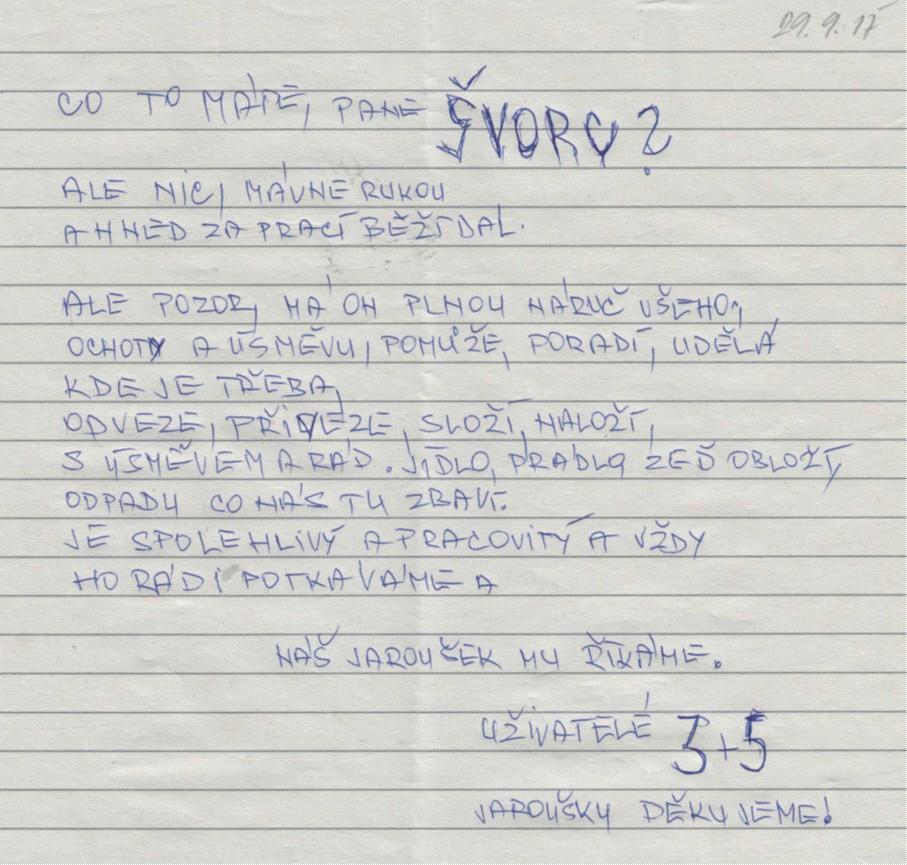 29.9.17
CO TO MÁTE, PANE ŠVORC?
ALE NIC, MÁVNE RUKOU
A HNED ZA PRACÍ BĚŽÍ DÁL.
ALE POZOR, MÁ ON PLNOU NÁRUČ VŠEHO,
OCHOTY A ÚSMĚVU, POMŮŽE, PORADÍ, UDĚLÁ
KDE JE TŘEBA,
ODVEZE, PŘIVEZE, SLOŽÍ, NALOŽÍ,
S ÚSMĚVEM A RÁD. JÍDLO, PRÁDLO, ZEĎ OBLOŽÍ,
ODPADU CO NÁS TU ZBAVÍ.
JE SPOLEHLIVÝ A PRACOVITÝ A VŽDY
HO RÁDI POTKÁVÁME A
NÁŠ JAROUŠEK MU ŘÍKÁME.
UŽIVATELÉ 3+5
JAROUŠKU DĚKUJEME!